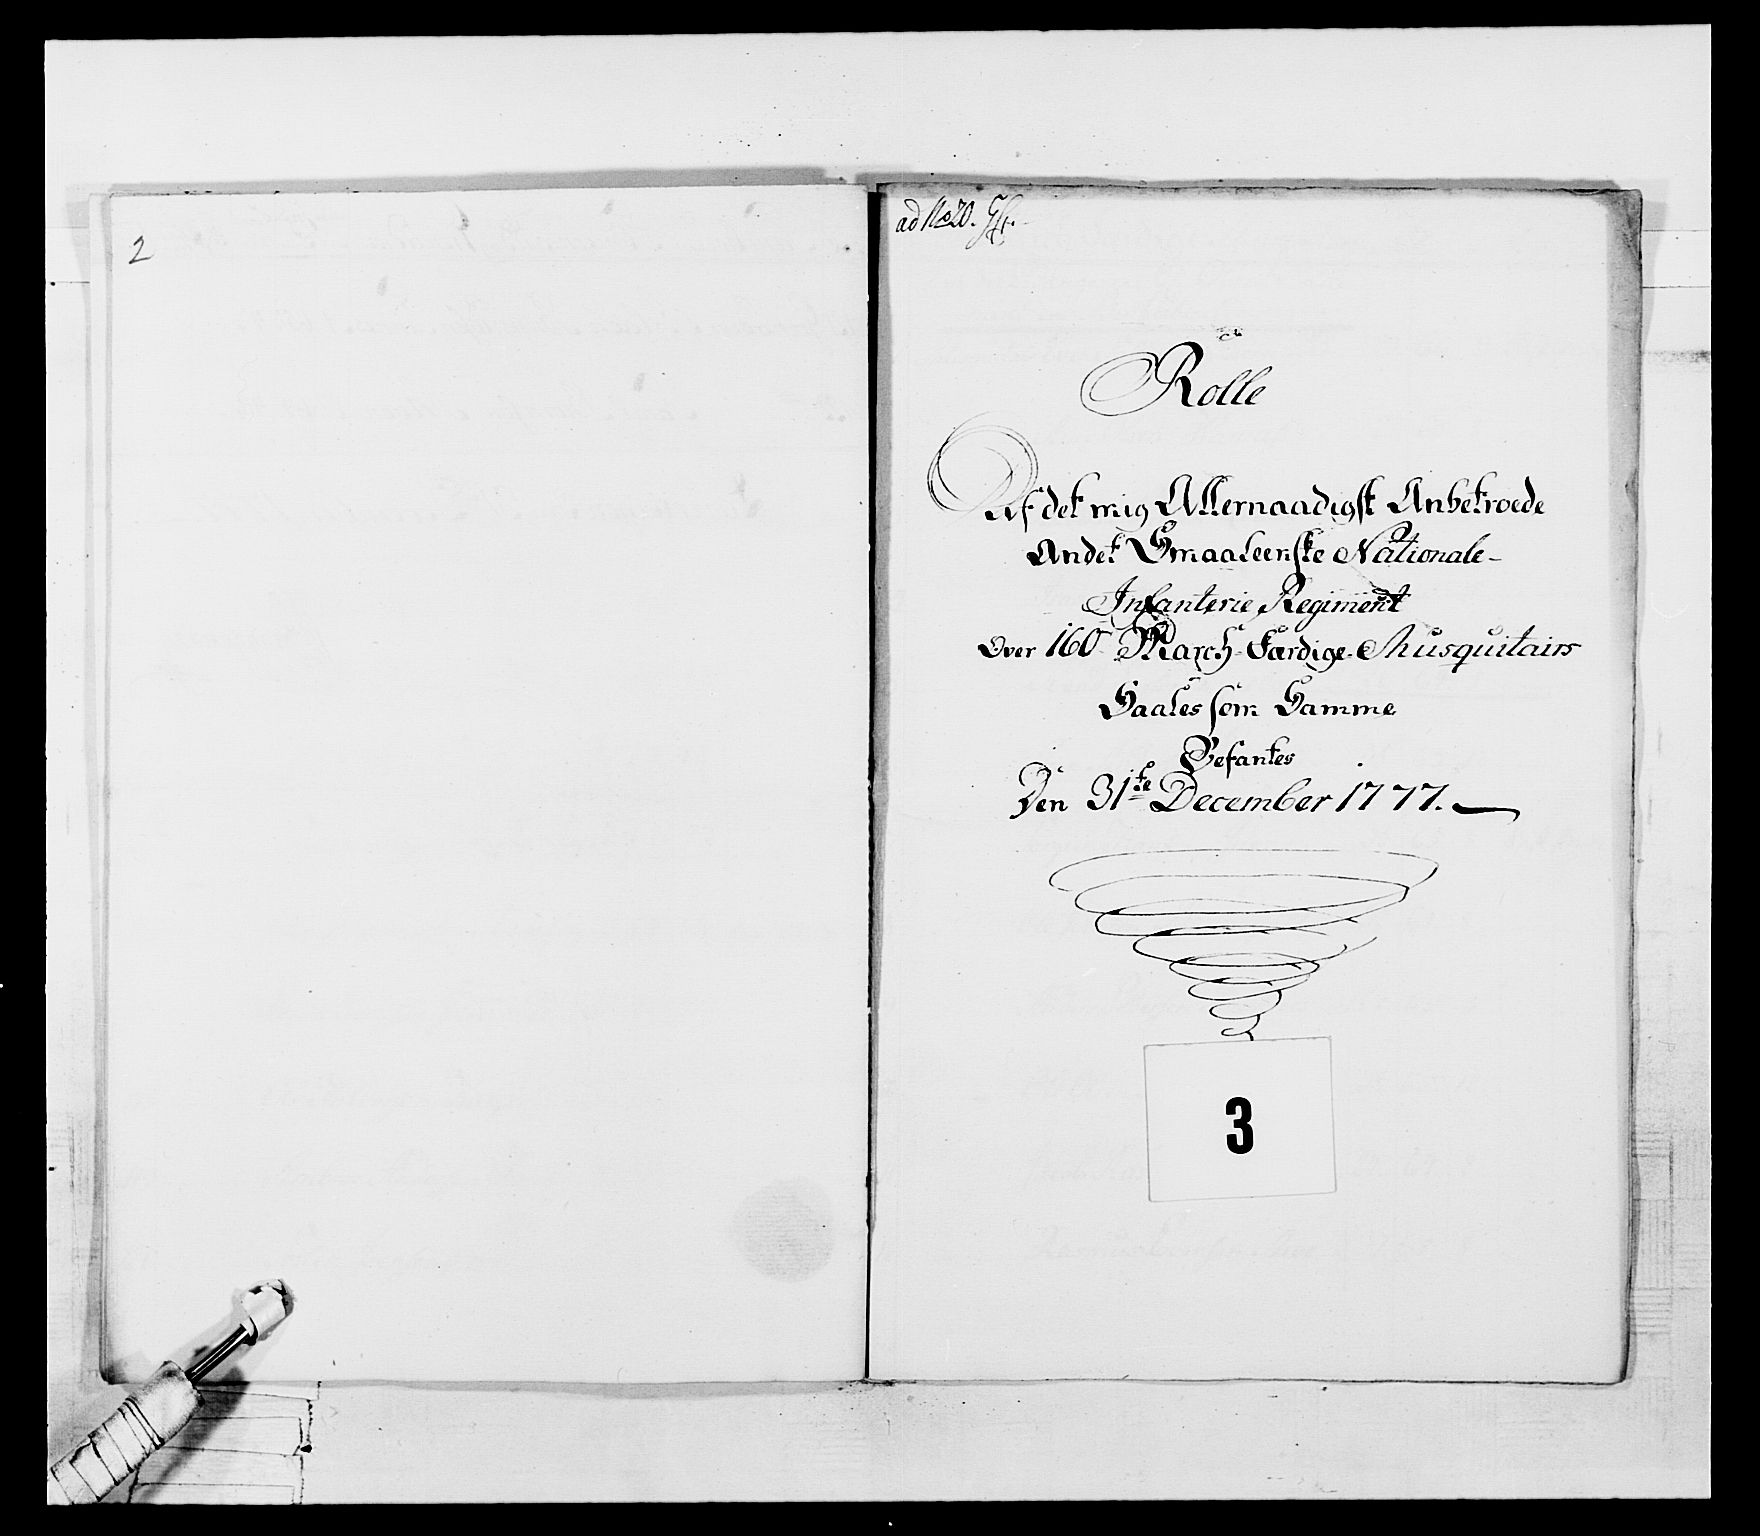 2
ad No 20.
Rolle
Af det mig Allernaadigst Anbetroede
Andet Smaaleenske Nationale-
Infanterie Regiment
Over 160 March-Færdige-Musquitairs
Saales som Samme
Befantes
Den 31te December 1777.
3